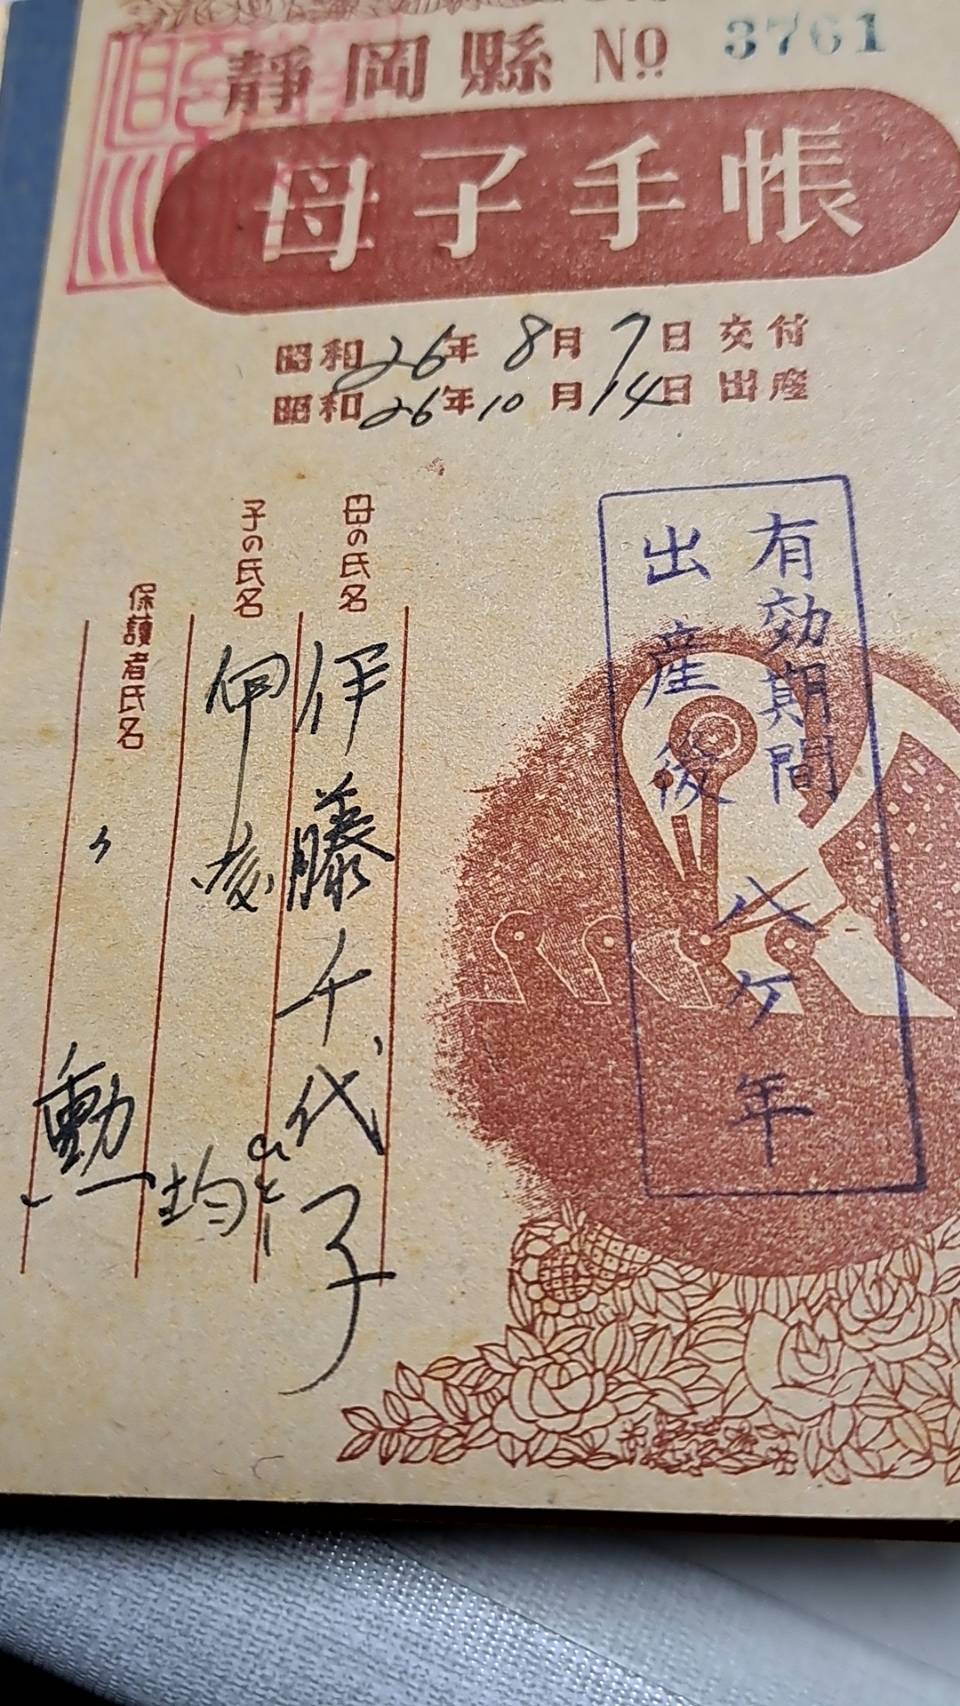 靜岡縣 No 3761
母子手帳
昭和26年8月7日交付
昭和26年10月14日出産
有効期間 八ヶ年
出産後
母の氏名 伊藤千代子
子の氏名 伊 均 ひとし
保護者氏名 〃 勲